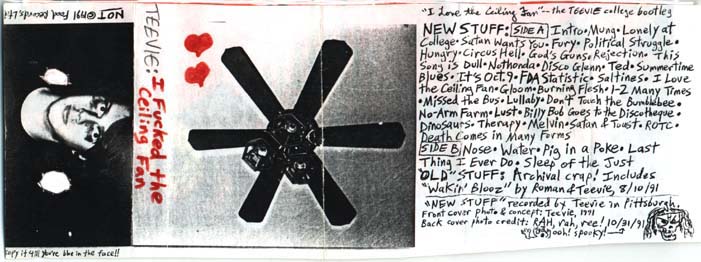 NOT ©1991 Food Records Ltd
TEEVIE: I Fucked the
Ceiling Fan
Copy it till you're blue in the face!!
"I Love the Ceiling Fan"--the TEEVIE college bootleg
NEW STUFF: SIDE A Intro • Mung • Lonely at
College • Satan Wants You • Fury • Political Struggle •
Hungry • Circus Hell • God's Guns • Rejection • This
Song is Dull • Nothonda • Disco Glenn • Ted • Summertime
Blues • It's Oct. 9 • FDA Statistic • Saltines • I Love
the Ceiling Pan • Gloom • Burning Flesh • 1-2 Many Times
• Missed the Bus • Lullaby • Don't Touch the Bumblebee •
No-Arm Farm • Lust • Billy Bob Goes to the Discotheque •
Dinosaurs • Therapy • Melvin • Satan & Toast • ROTC •
Death Comes in Many Forms
SIDE B Nose • Water • Pig in a Poke • Last
Thing I Ever Do • Sleep of the Just
"OLD" STUFF: Archival crap! Includes
"Wakin' Blooz" by Roman & Teevie, 8/10/91
"NEW STUFF" recorded by Teevie in Pittsburgh.
Front cover photo & concept: Teevie, 1991
Back cover photo credit: RAH, rah, ree! 10/31/91
ooh! spooky!